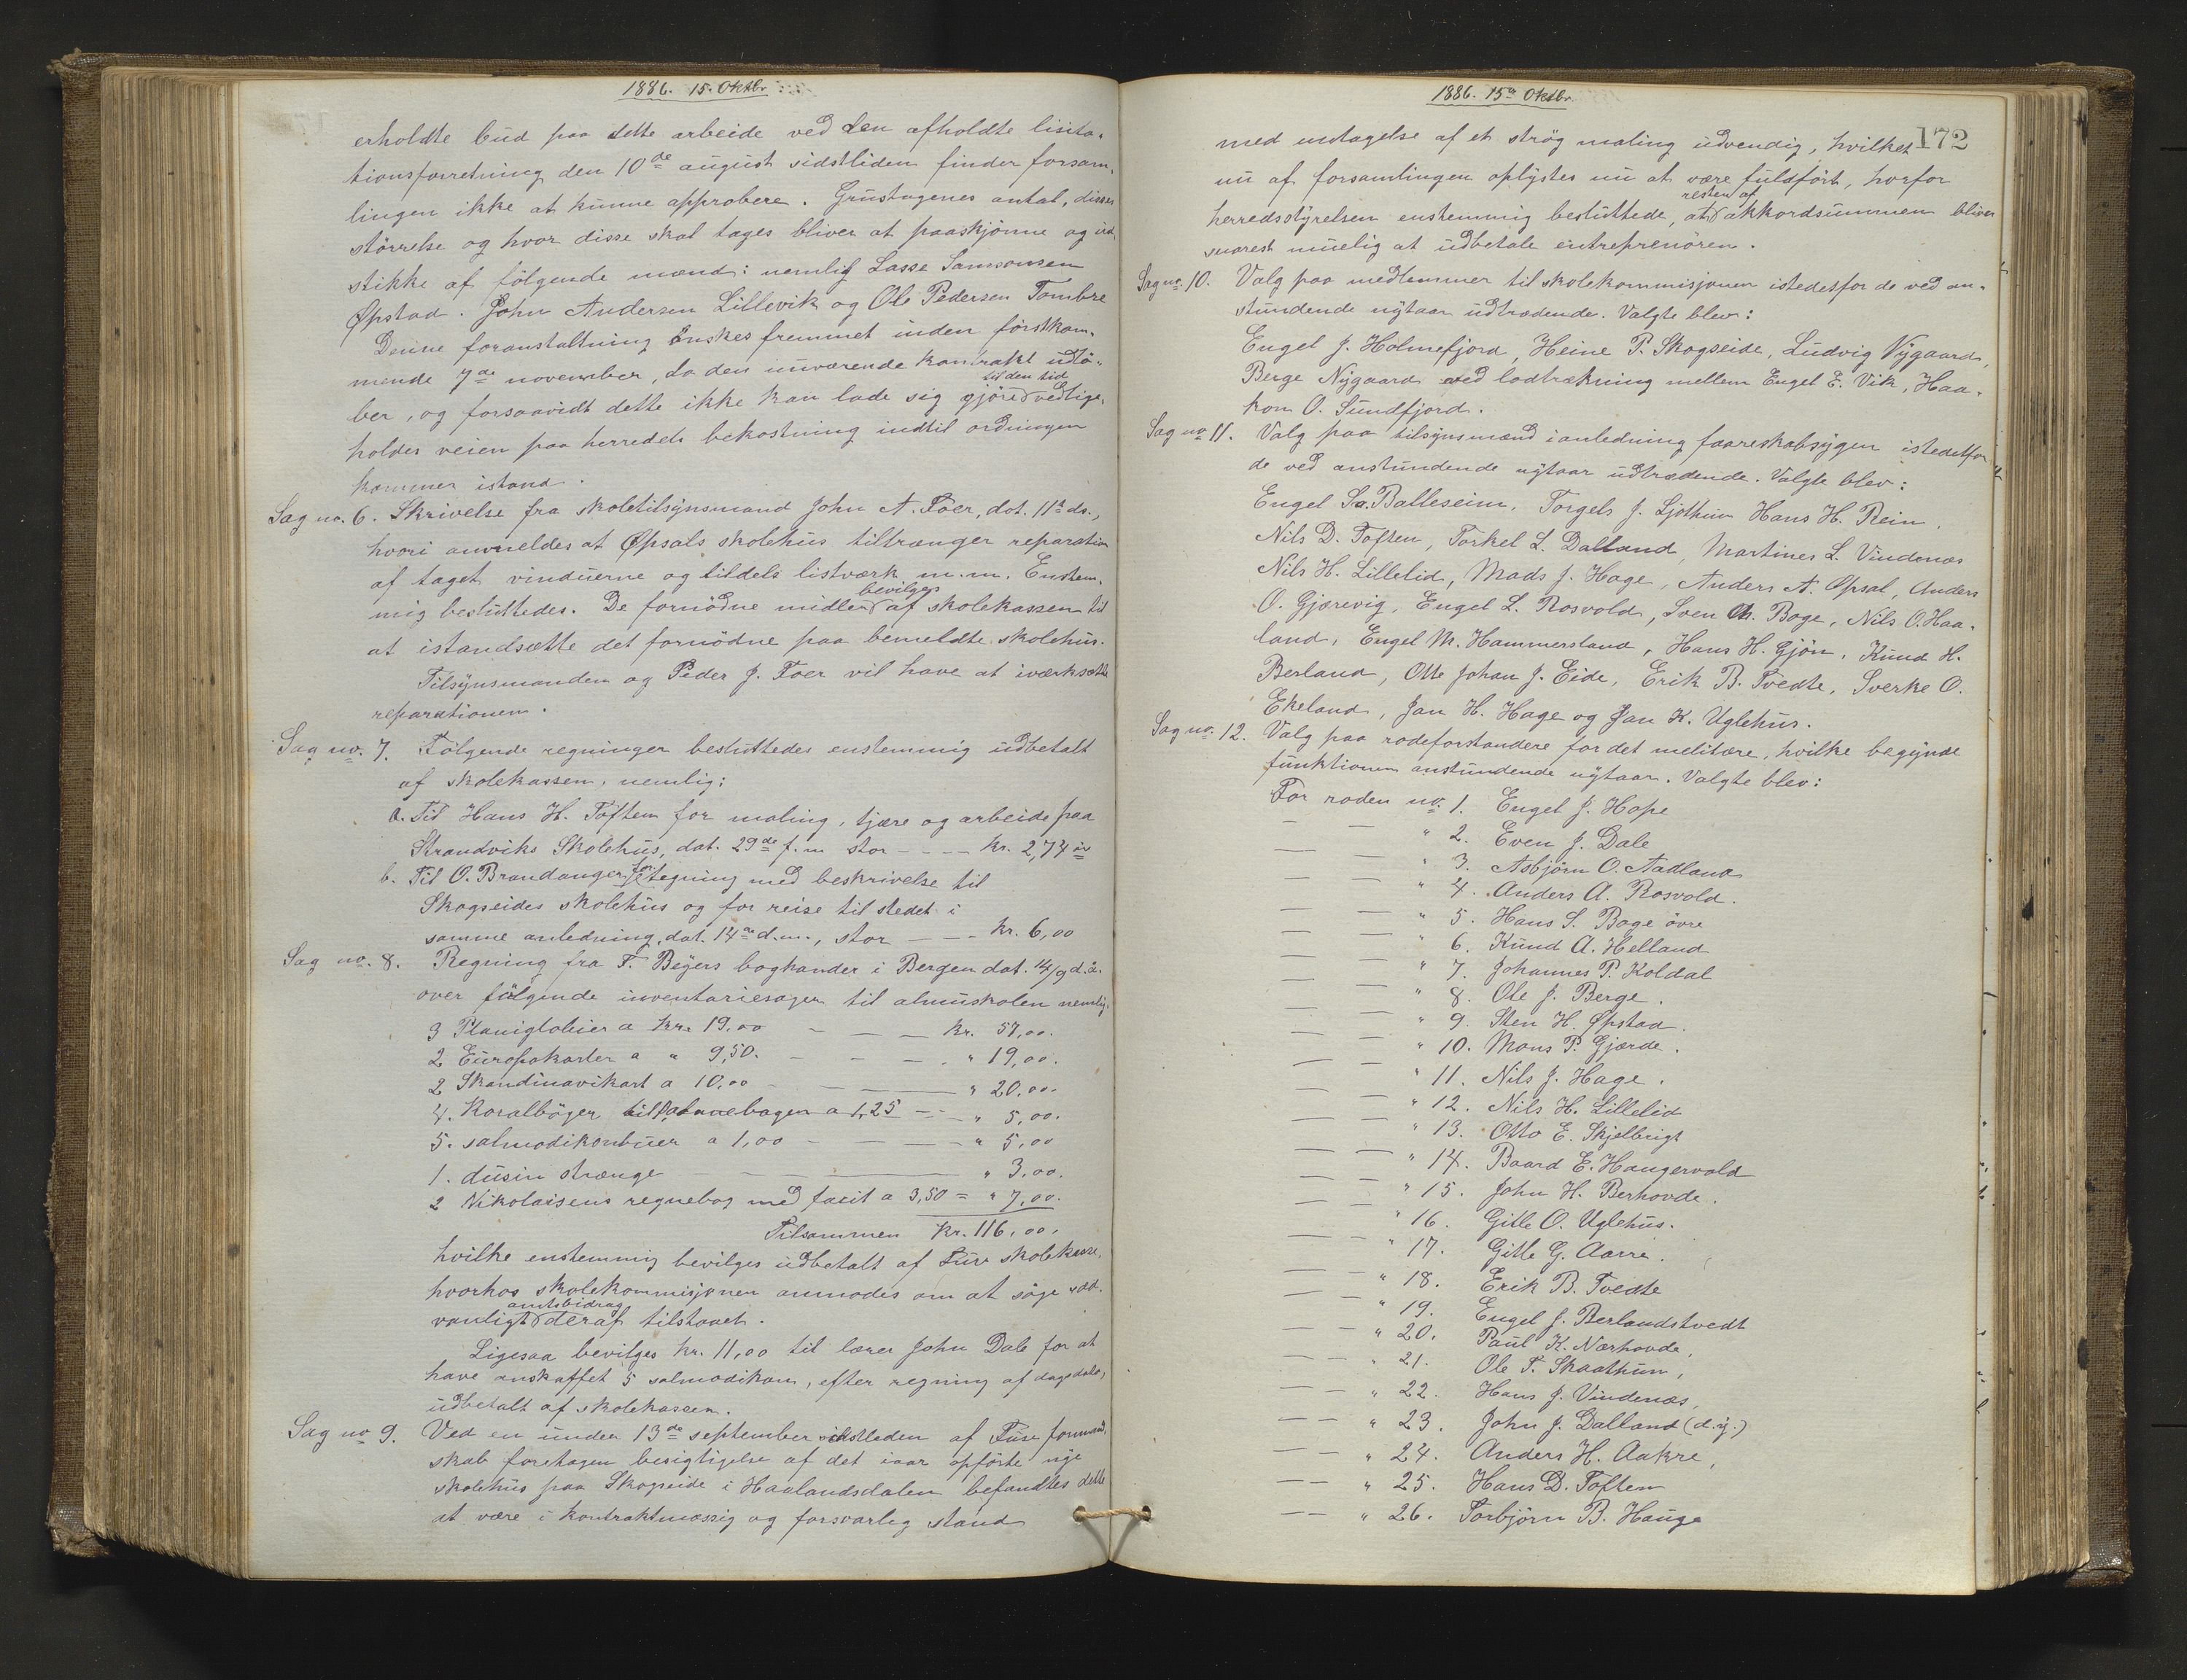 1886. 15. Oktbr.
erholdte bud paa dette arbeide ved den afholdte lisita-
tionsforretning den 10de august sidstliden finder forsam-
lingen ikke at kunne approbere. Grustagenes antal, disses
störrelse og hvor disse skal tages bliver at paaskjönne og ud-
stikke af fölgende mænd: nemlig Lasse Samsonsen
Øpstad. John Andersen Lillevik og Ole Pedersen Tombre
Denne foranstaltning önskes fremmet inden förstkom-
mende 7de november, da den nuværende kontrakt udlö-
til den tid
ber, og forsaavidt dette ikke kan lade sig gjöre vedlige-
holdes veien paa herredets bekostning indtil ordningen
kommer istand.
Sag no. 6. Skrivelse fra skoletilsynsmand John A. Foer, dat. 11te ds.,
hvori anmeldes at Øpsals skolehus tiltrænger reparation
af taget vinduerne og tildels listværk m.m. Enstem-
bevilges
mig besluttedes. De fornödne midler af skolekassen til
at istandsætte det fornödne paa bemeldte skolehus.
Tilsynsmanden og Peder J. Foer vil have at iværksætte
reparationen.
Sag no. 7. Fölgende regninger besluttedes enstemmig udbetalt
af skolekassen, nemlig:
a. Til Hans H. Toften for maling, tjære og arbeide paa
Strandviks Skolehus, dat. 29de f.m. stor - - - - kr. 2,74 ör
for
b. Til O. Brandanger tegning med beskrivelse til
Skogseides skolehus og for reise til stedet i
samme anledning, dat. 14de d.m., stor - - - kr. 6,00
Sag no. 8. Regning fra F. Beyers boghandel i Bergen dat. 14/9 d.a.
over fölgende inventariesager til almuskolen nemlig:
3 Planiglobier a kr. 19,00 - - - kr. 57,00.
2 Europakarter a " 9,50. - - - - " 19,00.
2 Skandinavikart a 10,00 - - - " 20,00.
4. Koralböger til salmebogen a 1,25 - - - " 5,00.
5. salmodikonbuer a 1,00 - - - - " 5,00
1. dusin strænge - - - " 3,00.
2 Nikolaisens regnebog med facit a 3,50 = " 7,00.
Tilsammen kr. 116,00.
hvilke enstemmig bevilges udbetalt af Fuse skolekasse.
hvorhos skolekommisjonen anmodes om at söge sæd-
amtsbidrag
vanligt deraf tilstaaet.
Ligesaa bevilges kr. 11,00 til lærer John Dale for at
have anskaffet 5 salmodikon, efter regning af dags dato,
udbetalt af skolekassen.
Sag no. 9. Ved en under 13de september sidstleden af Fuse formand-
skab foretagen besigtigelse af det iaar opförte nye
skolehus paa Skogseide i Haalandsdalen befandtes dette
at være i kontraktmæssig og forsvarlig stand
1886. 15de Oktbr.
172
med undtagelse af et strög maling udvendig, hvilket
nu af forsamlingen oplystes nu at være fuldfört, hvorfor
resten af
herredsstyrelsen enstemmig besluttede, at akkordsummen bliver
snarest muelig at udbetale entreprenören.
Sag no. 10. Valg paa medlemmer til skolekommisjonen istedetfor de ved an-
stundende nytaar udtrædende. Valgte blev:
Engel J. Holmefjord, Heine P. Skogseide, Ludvig Nygaard,
Berge Nygaard ved lodtrækning mellem Engel E. Vik, Haa-
kon O. Sundfjord.
Sag no. 11. Valg paa tilsynsmænd i anledning faareskabsygen istedetfor
de ved anstundende nytaar udtrædende. Valgte blev:
Engel Sa. Balleseim, Torgels J. Ljothun Hans H. Rein,
Nils D. Toften, Torkel L. Dalland, Martines L. Vindenæs
Nils H. Lillelid, Mads J. Hage, Anders A. Øpsal, Anders
O. Gjærevig, Engel L. Rosvold, Sven M. Boge, Nils O. Haa-
land, Engel M. Hammersland, Hans H. Gjön, Knud H.
Berland, Otte Johan J. Eide, Erik B. Tvedte, Sverke O.
Ekeland, Jan H. Hage og Jan K. Uglehus.
Sag no. 12. Valg paa rodeforstandere for det melitære, hvilke begynde
funktionen anstundende nytaar. Valgte blev:
For roden no. 1. Engel J. Hope
— — " 2. Even J. Dale
— — " 3. Asbjörn O. Aadland
— — " 4. Anders A. Rosvold.
— — " 5. Hans S. Boge övre
— — " 6. Knud A. Helland
— — " 7. Johannes P. Koldal
— — " 8. Ole J. Berge.
— — " 9. Sten H. Øpstad.
— — " 10. Mons P. Gjærde.
— — " 11. Nils J. Hage.
— — " 12. Nils H. Lillelid
— — " 13. Otto E. Skjelbrigt
— — " 14. Baard E. Haugervold
— — " 15. John H. Berhovde.
— — " 16. Gitle O. Uglehus.
— — " 17. Gitle G. Aarre.
— — " 18. Erik B. Tvedte
— — " 19. Engel J. Berlandstvedt
— — " 20. Paul K. Nærhovde,
— — " 21. Ole T. Skaathun,
— — " 22. Hans J. Vindenæs,
— — " 23. John J. Dalland (d.y.)
— — " 24. Anders H. Aakre,
— — " 25. Hans D. Toften
— — " 26. Torbjörn B. Hauge